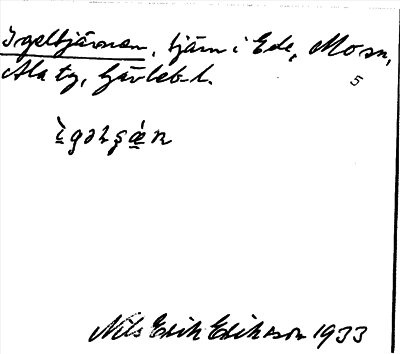 Igeltjärnen, tjärn i Ede, Mo sn,
Ala tg, Gävleb. l.
5
ìgəlşǽn
Nils Erik Eriksson 1933